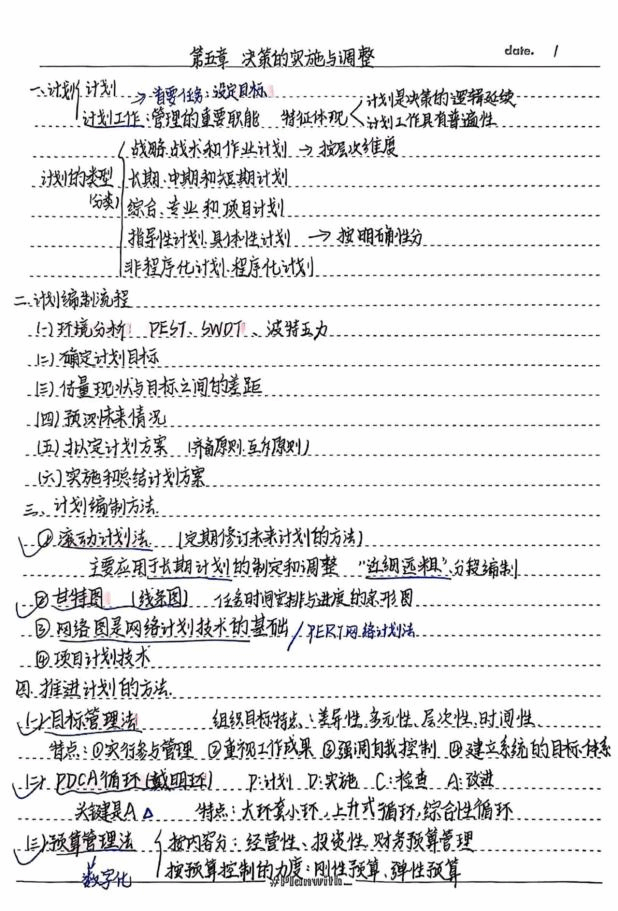 第五章 决策的实施与调整 date. 1
一、计划 计划 → 首要任务：设定目标
计划工作：管理的重要职能 特征体现 计划是决策的逻辑延续
计划工作具有普遍性
战略、战术和作业计划 → 按层次维度
计划的类型 长期、中期和短期计划
(分类) 综合、专业和项目计划
指导性计划、具体性计划 → 按明确性分
非程序化计划、程序化计划
二、计划编制流程
(一)环境分析 PEST、SWOT、波特五力
(二)确定计划目标
(三)估量现状与目标之间的差距
(四)预测未来情况
(五)拟定计划方案 (齐备原则、互斥原则)
(六)实施和总结计划方案
三、计划编制方法
① 滚动计划法 (定期修订未来计划的方法)
主要应用于长期计划的制定和调整 "近细远粗"、分段编制
② 甘特图 (线条图) 任务时间安排与进度的条形图
③ 网络图是网络计划技术的基础 / PERT网络计划法
④ 项目计划技术
四、推进计划的方法
(一)目标管理法 组织目标特点：差异性、多元性、层次性、时间性、
特点：①实行参与管理 ②重视工作成果 ③强调自我控制 ④建立系统的目标体系
(二) PDCA循环(戴明环) P：计划 D：实施 C：检查 A：改进
关键是A △ 特点：大环套小环，上升式循环，综合性循环
(三)预算管理法 按内容分：经营性、投资性、财务预算管理
数字化 按预算控制的力度：刚性预算、弹性预算
#Planwith_